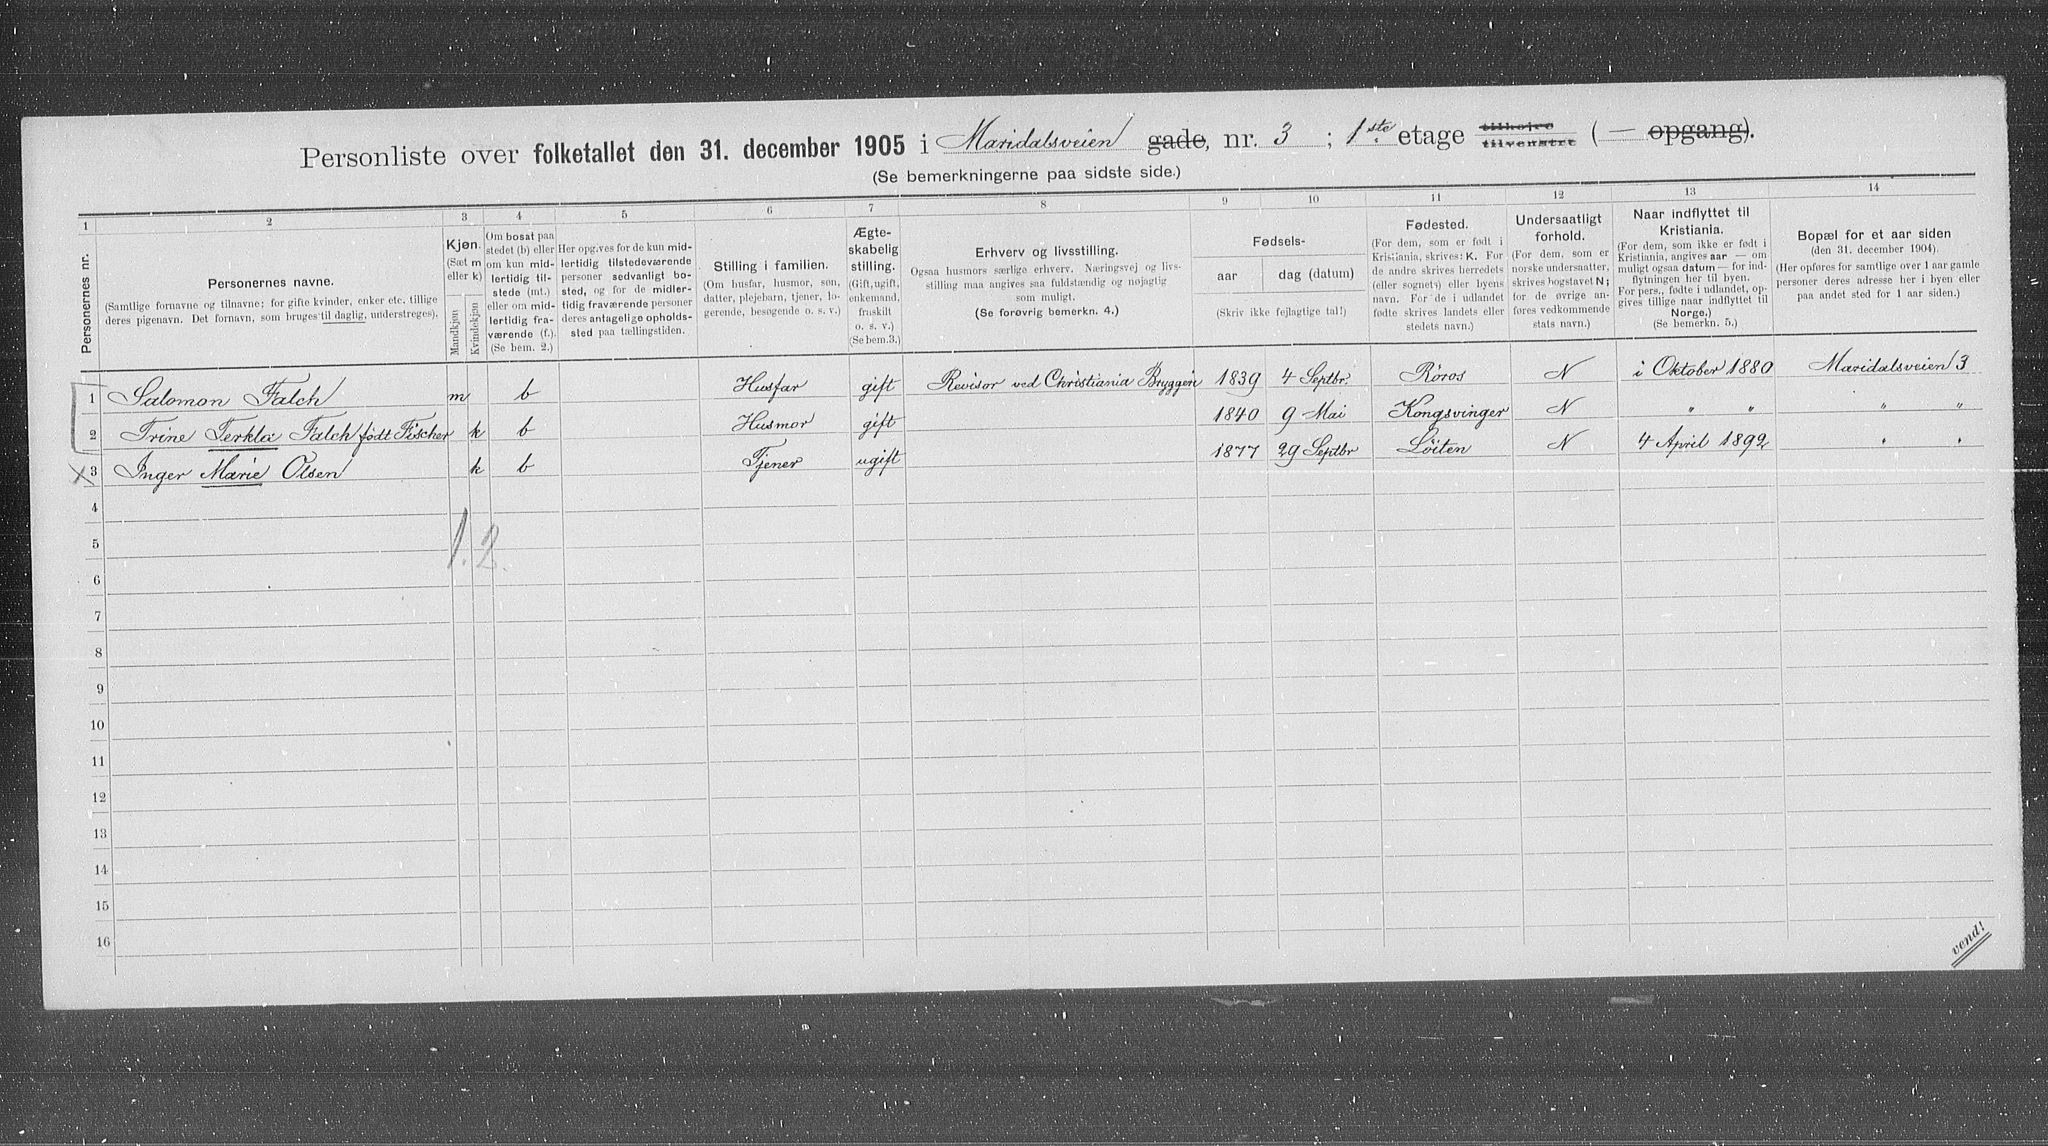 Personliste over folketallet den 31. december 1905 i Maridalsveien gade, nr. 3 ; 1ste etage tilhøire tilvenstre (— opgang).
(Se bemerkningerne paa sidste side.)
1 2 3 4 5 6 7 8 9 10 11 12 13 14
Personernes nr.
Personernes navne.
(Samtlige fornavne og tilnavne; for gifte kvinder, enker etc. tillige
deres pigenavn. Det fornavn, som bruges til daglig, understreges).
Kjøn.
(Sæt m
eller k)
Mandkjøn
Kvindekjøn
Om bosat paa
stedet (b) eller
om kun mid-
lertidig til-
stede (mt.)
eller om mid-
lertidig fra-
værende (f.).
(Se bem. 2.)
Her opgives for de kun mid-
lertidig tilstedeværende
personer sedvanligt bo-
sted, og for de midler-
tidig fraværende personer
deres antagelige opholds-
sted paa tællingstiden.
Stilling i familien.
(Om husfar, husmor, søn,
datter, plejebarn, tjener, lo-
gerende, besøgende o. s. v.)
Ægte-
skabelig
stilling.
(Gift, ugift,
enkemand,
fruskilt
o. s. v.)
(Se bem.3.)
Erhverv og livsstilling.
Ogsaa husmors særlige erhverv. Næringsvej og livs-
stilling maa angives saa fuldstændig og nøjagtig
som muligt.
(Se forøvrig bemerkn. 4.)
Fødsels-
aar
dag (datum)
(Skriv ikke fejlagtige tal!)
Fødested.
(For dem, som er født i
Kristiania, skrives: K. For
de andre skrives herredets
(eller sognets) eller byens
navn. For de i udlandet
fødte skrives landets eller
stedets navn.)
Undersaatligt
forhold.
(For dem, som er
norske undersaatter,
skrives bogstavet N;
for de øvrige an-
føres vedkommende
stats navn.)
Naar indflyttet til
Kristiania.
(For dem, som ikke er født i
Kristiania, angives aar — om
muligt ogsaa datum — for ind-
flytningen her til byen.
For pers., fødte i udlandet, op-
gives tillige naar indflyttet til
Norge.)
(Se bemerkn. 5.)
Bopæl for et aar siden
(den 31. december 1904).
(Her opføres for samtlige over 1 aar gamle
personer deres adresse her i byen eller
paa andet sted for 1 aar siden.)
1 Salomon Falch m b Husfar gift Revisor ved Christiania Bryggeri 1839 4 Septbr. Röros N i Oktober 1880 Maridalsveien 3
2 Trine Terklà Falch født Fischer k b Husmor gift 1840 9 Mai Kongsvinger N " " " "
X 3 Inger Marie Olsen k b Tjener ugift 1877 29 Septbr Löiten N 4 April 1892 " "
4
5
1. 2.
6
7
8
9
10
11
12
13
14
15
16
vend!